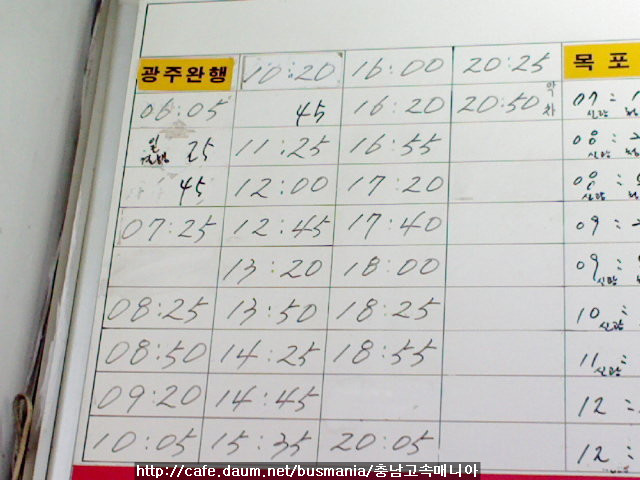 광주완행 10:20 16:00 20:25 목포
06:05 45 16:20 20:50 막차 07:
25 11:25 16:55 08:
45 12:00 17:20 08:
07:25 12:45 17:40 09:
13:20 18:00 09:
08:25 13:50 18:25 10:
08:50 14:25 18:55 11:
09:20 14:45 12:
10:05 15:35 20:05 12:
http://cafe.daum.net/busmania/충남고속매니아